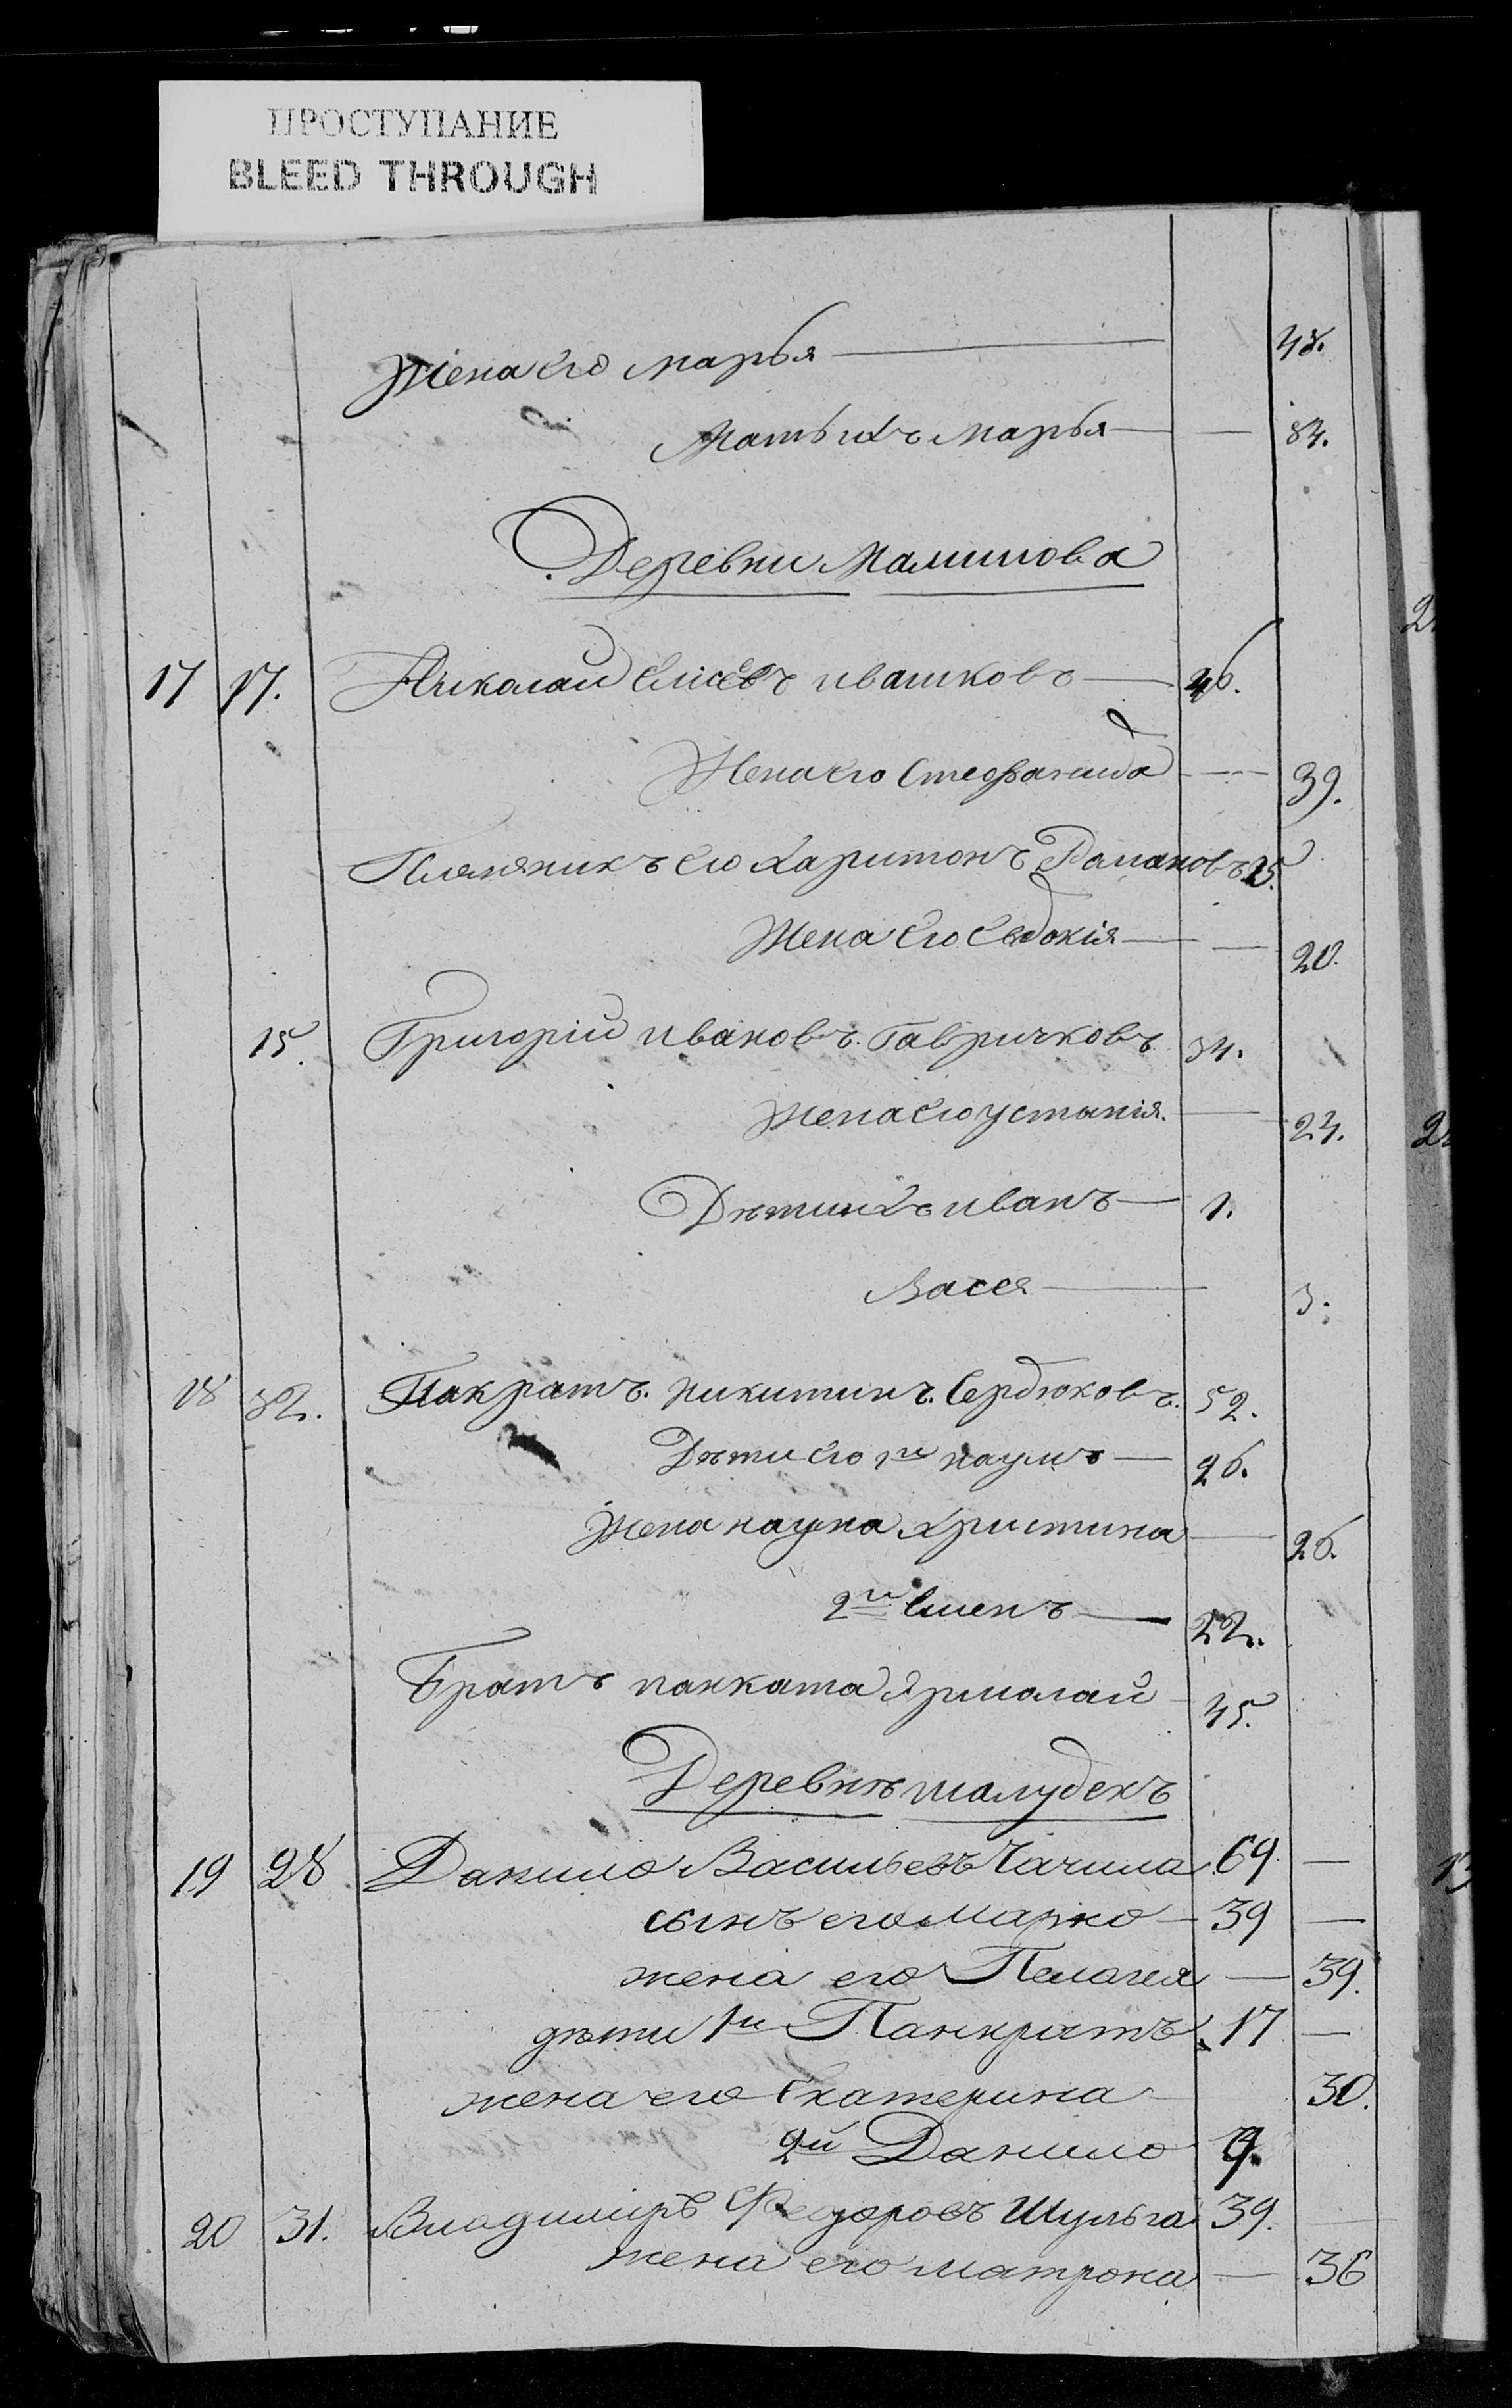 ПРОСТУПАНИЕ
BLEED THROUGH
Жена его марья — 48.
Мать ихъ марья — — 84.
Деревни Малинова
17 17. Николай Елисевъ ивашковъ — 46.
Жена его Стеофанида — 39.
Племяникъ его Харитонъ Романовъ 25.
Жена его Евдокия — — 20.
15. Григорій ивановъ. Гавричковъ 34.
Жена его устинія. — 24.
Дѣти ихъ иванъ — 1.
Васся — 3.
18 32. Пакратъ. никитинъ. Сердюковъ. 52.
Дѣти его 1й наумъ — 26.
Жена наума Христина — 26.
2й Еменъ — 22.
Братъ панката Ярмолай 45.
Деревнѣ шалудекъ
19 28 Данило Васильевъ Чачила 69 —
сынъ его Марко — 39 —
жена его Пелагея — 39.
дѣти 1й Панкратъ 17 —
жена его Екатерина — 30.
2й Данило 9.
20 31. Владимиръ Федоровъ Шульга 39. —
жена его матрона — 36